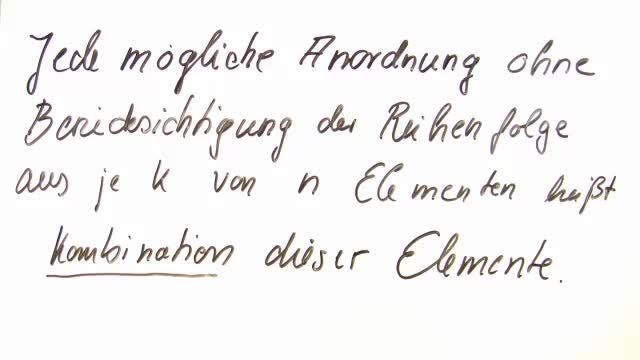 Jede mögliche Anordnung ohne
Berücksichtigung der Reihenfolge
aus je k von n Elementen heißt
Kombination dieser Elemente.